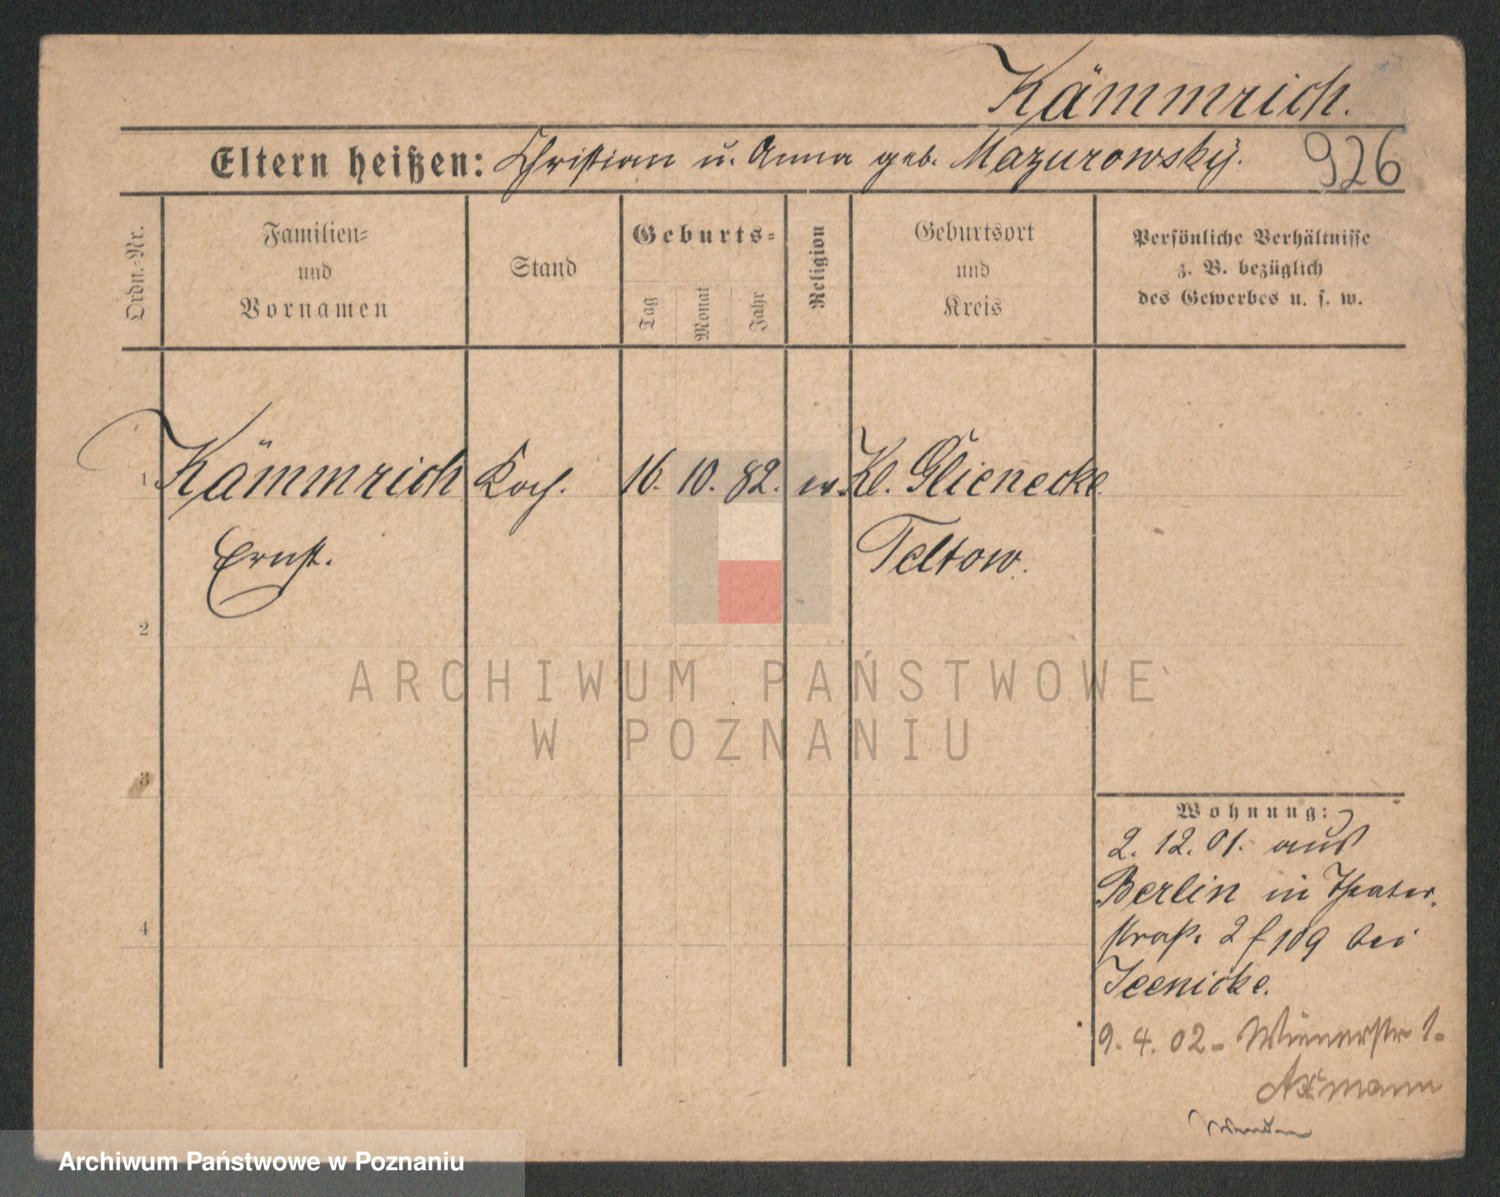 Kämmrich.
Eltern heißen: Christian u. Anna geb. Mazurowsky.
926
Ordn.-Nr.
Familien-
und
Vornamen
Stand
Geburts-
Tag
Monat
Jahr
Religion
Geburtsort
und
Kreis
Persönliche Verhältnisse
z. B. bezüglich
des Gewerbes u. s. w.
1 Kämmrich Koch. 16. 10. 82. ev. Kl. Glienecke
Ernst. Teltow.
2
ARCHIWUM PAŃSTWOWE
W POZNANIU
3
Wohnung:
2. 12. 01. aus
Berlin in Theater-
4
straß. 2 f 109 bei
Jeenicke.
9. 4. 02 - Wienerstr 1-
Axmann
Wenden
Archiwum Państwowe w Poznaniu